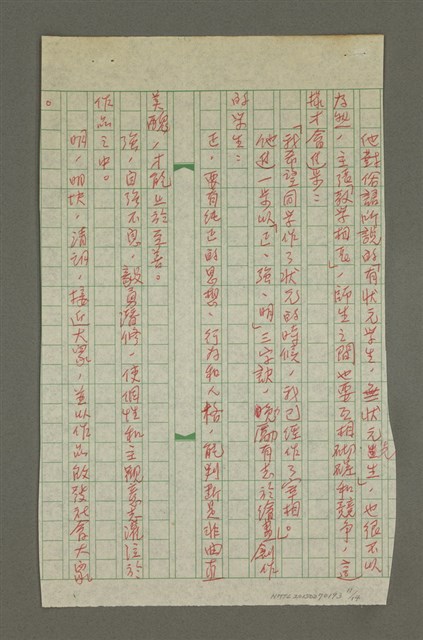 他對俗語所說的「有狀元學生，無狀元先生」，也很不以
為然，主張「教學相長」，師生之間也要互相砌磋和競爭，這
樣才會進步：
「我希望同學作了狀元的時候，我已經作了宰相」。
他進一步以「正、強、明」三字訣，勉勵有志於繪畫創作
的學生：
正，要有純正的思想、行為和人格，能判斷是非曲直
美醜，才能止於至善。
強，自強不息，毅勇潛修，使個性和主觀意識灌注於
作品之中。
明，明快，清明，接近大眾，並以作品啟發社會大眾
。
NMTL20130070193 11/14